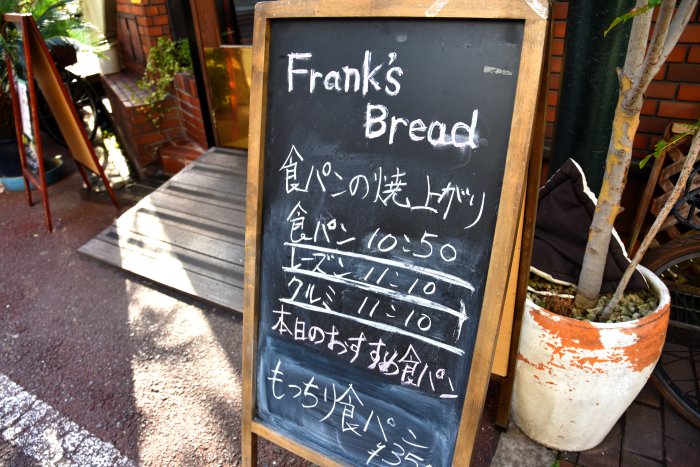 Frank's
Bread
食パンの焼上がり
食パン 10:50
レーズン 11:10
クルミ 11:10
本日のおすすめ食パン
もっちり食パン